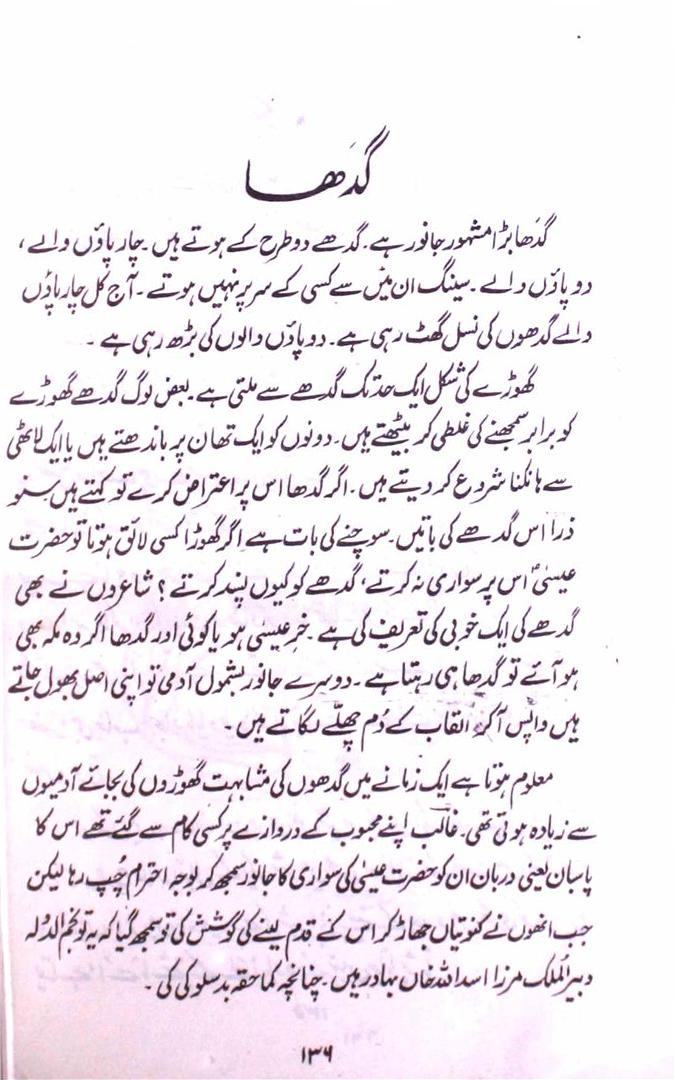 گدَھا
گدَھا بڑا مشہور جانور ہے۔ گدھے دو طرح کے ہوتے ہیں۔ چار پاؤں والے،
دو پاؤں والے۔ سینگ ان میں سے کسی کے سر پر نہیں ہوتے۔ آج کل چار پاؤں
والے گدھوں کی نسل گھٹ رہی ہے۔ دو پاؤں والوں کی بڑھ رہی ہے۔
گھوڑے کی شکل ایک حد تک گدھے سے ملتی ہے۔ بعض لوگ گدھے گھوڑے
کو برابر سمجھنے کی غلطی کر بیٹھتے ہیں۔ دونوں کو ایک تھان پر باندھتے ہیں یا ایک لاٹھی
سے ہانکنا شروع کر دیتے ہیں۔ اگر گدھا اس پر اعتراض کرے تو کہتے ہیں سنو
ذرا اس گدھے کی باتیں۔ سوچنے کی بات ہے اگر گھوڑا کسی لائق ہوتا تو حضرت
عیسیٰؑ اس پر سواری نہ کرتے، گدھے کو کیوں پسند کرتے؟ شاعروں نے بھی
گدھے کی ایک خوبی کی تعریف کی ہے۔ خرِ عیسیٰ ہو یا کوئی اور گدھا اگر وہ مکہ بھی
ہو آئے تو گدھا ہی رہتا ہے۔ دوسرے جانور بشمول آدمی تو اپنی اصل بھول جاتے
ہیں واپس آکر القاب کے دُم چھلّے لگاتے ہیں۔
معلوم ہوتا ہے ایک زمانے میں گدھوں کی مشابہت گھوڑوں کی بجائے آدمیوں
سے زیادہ ہوتی تھی۔ غالبؔ اپنے محبوب کے دروازے پر کسی کام سے گئے تھے اس کا
پاسبان یعنی دربان ان کو حضرت عیسیٰ کی سواری کا جانور سمجھ کر بوجہ احترام چُپ رہا لیکن
جب انھوں نے کنوتیاں جھاڑ کر اس کے قدم لینے کی کوشش کی تو سمجھ گیا کہ یہ تو نجم الدولہ
دبیر المُلک مرزا اسد اللہ خاں بہادر ہیں۔ چنانچہ کماحقہ بدسلوکی کی۔
۱۳۶